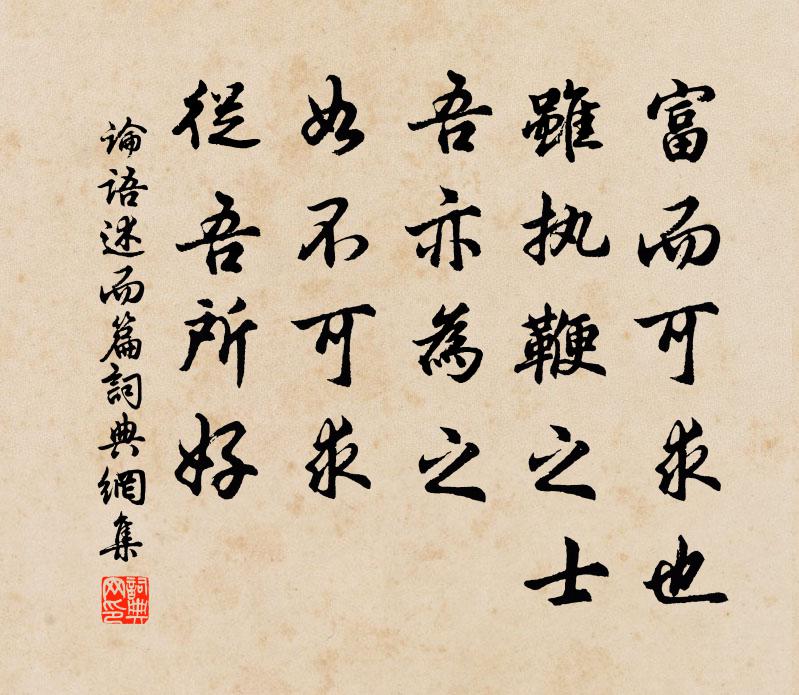 富而可求也
雖执鞭之士
吾亦為之
如不可求
從吾所好
論語述而篇詞典網集
詞典网印